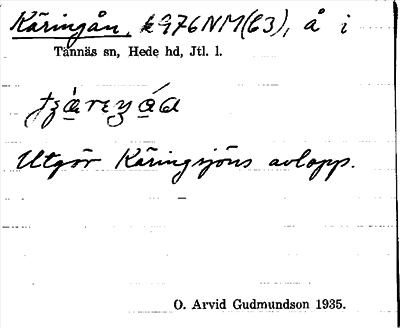 Käringån, 976NM(63), å i
Tännäs sn, Hede hd, Jtl. l.
Utgör Käringsjöns avlopp.
O. Arvid Gudmundson 1935.